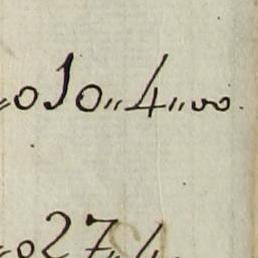 010,,4,,00.
027,,4,,